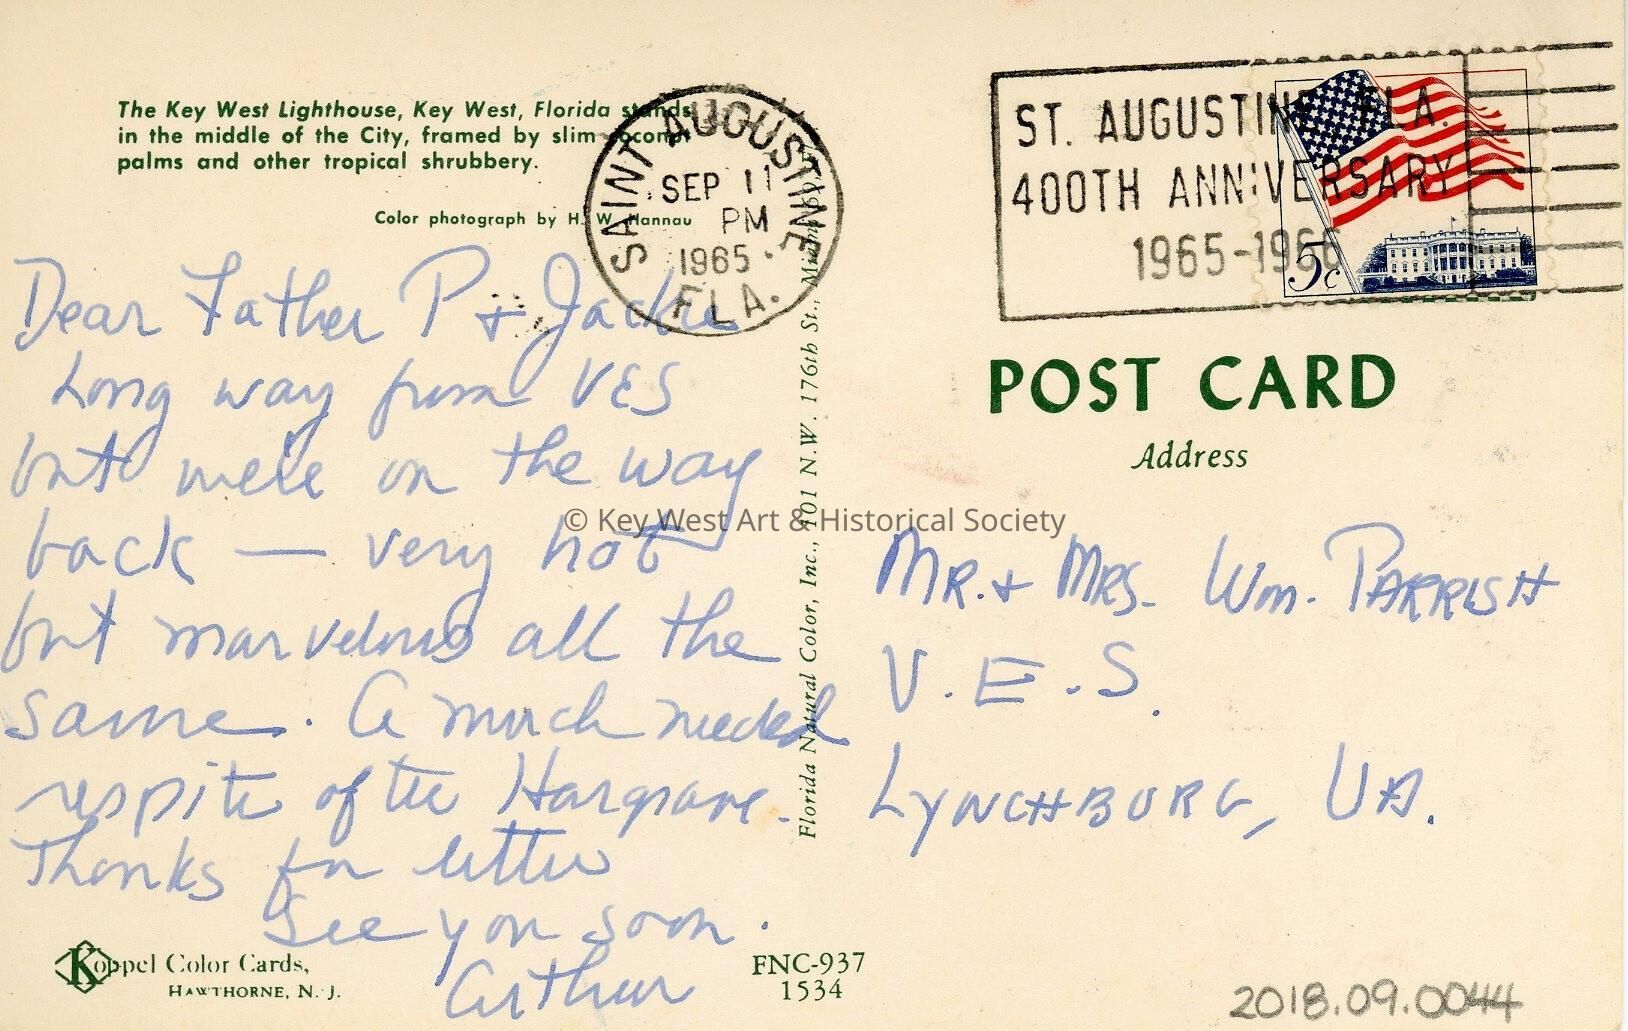 The Key West Lighthouse, Key West, Florida stands
in the middle of the City, framed by slim coconut
palms and other tropical shrubbery.
Color photograph by H. W. Hannau
SAINT AUGUSTINE
SEP 11
PM
1965
FLA.
ST. AUGUSTINE, FLA.
400TH ANNIVERSARY
1965-1966
5c
Dear Father P + Jackie
Long way from VES
but we're on the way
back — very hot
but marvelous all the
same. A much needed
respite after Hargrave.
Thanks for letter
See you soon.
Arthur
Koppel Color Cards,
HAWTHORNE, N. J.
FNC-937
1534
Florida Natural Color, Inc., 101 N.W. 176th St., Miami
POST CARD
Address
MR. + MRS. Wm. PARRISH
V.E.S.
LYNCHBURG, VA.
© Key West Art & Historical Society
2018.09.0044